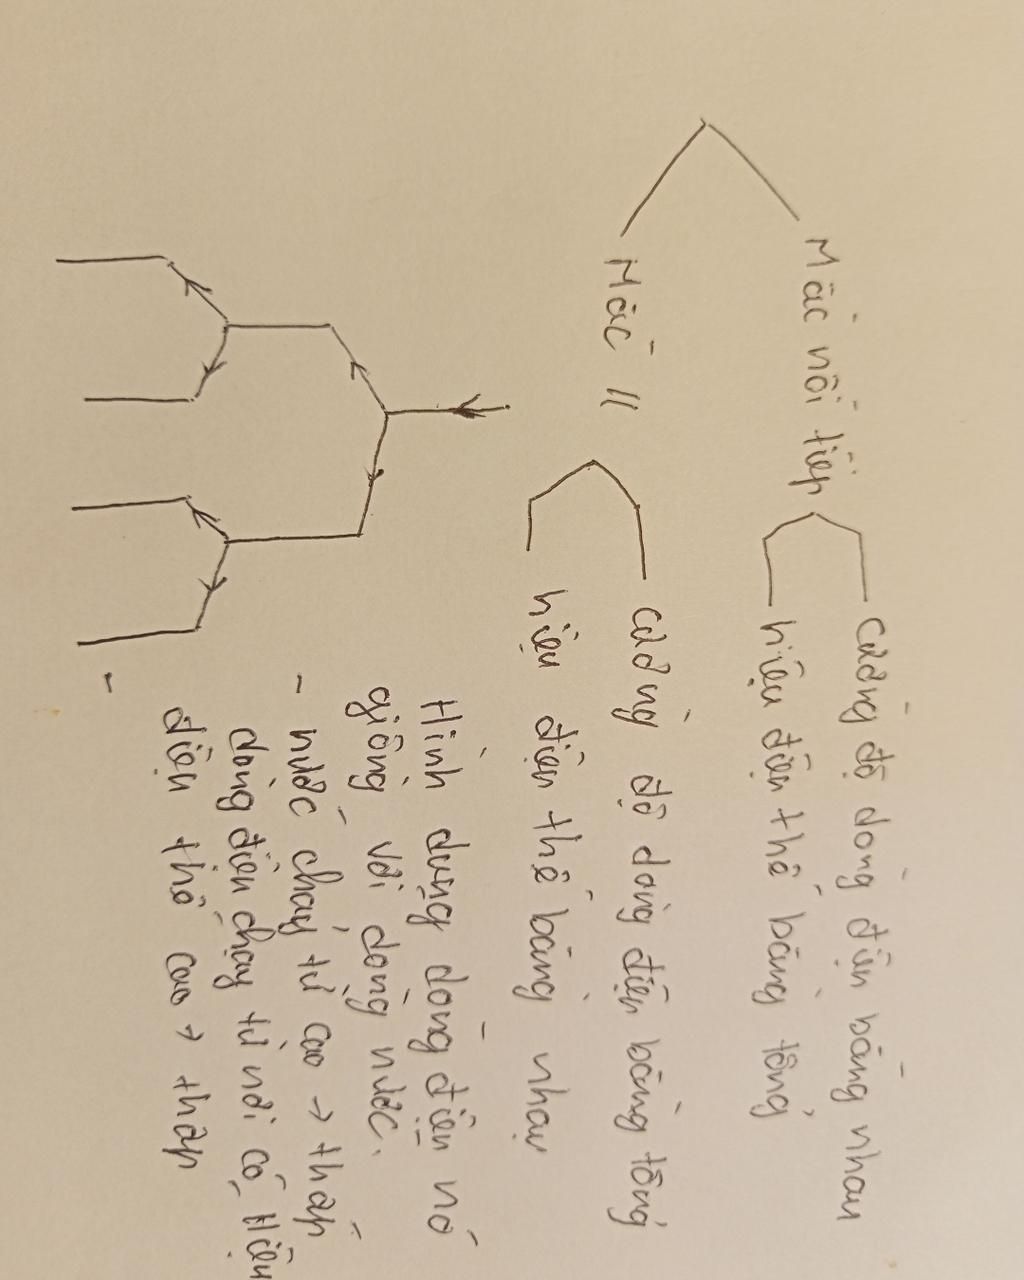 Mắc nối tiếp
Cường độ dòng điện bằng nhau
hiệu điện thế bằng tổng
Mắc //
cường độ dòng điện bằng tổng
hiệu điện thế bằng nhau
Hình dung dòng điện nó
giống với dòng nước.
- nước chảy từ cao → thấp
dòng điện chạy từ nơi có Hiệu
điện thế cao → thấp
-